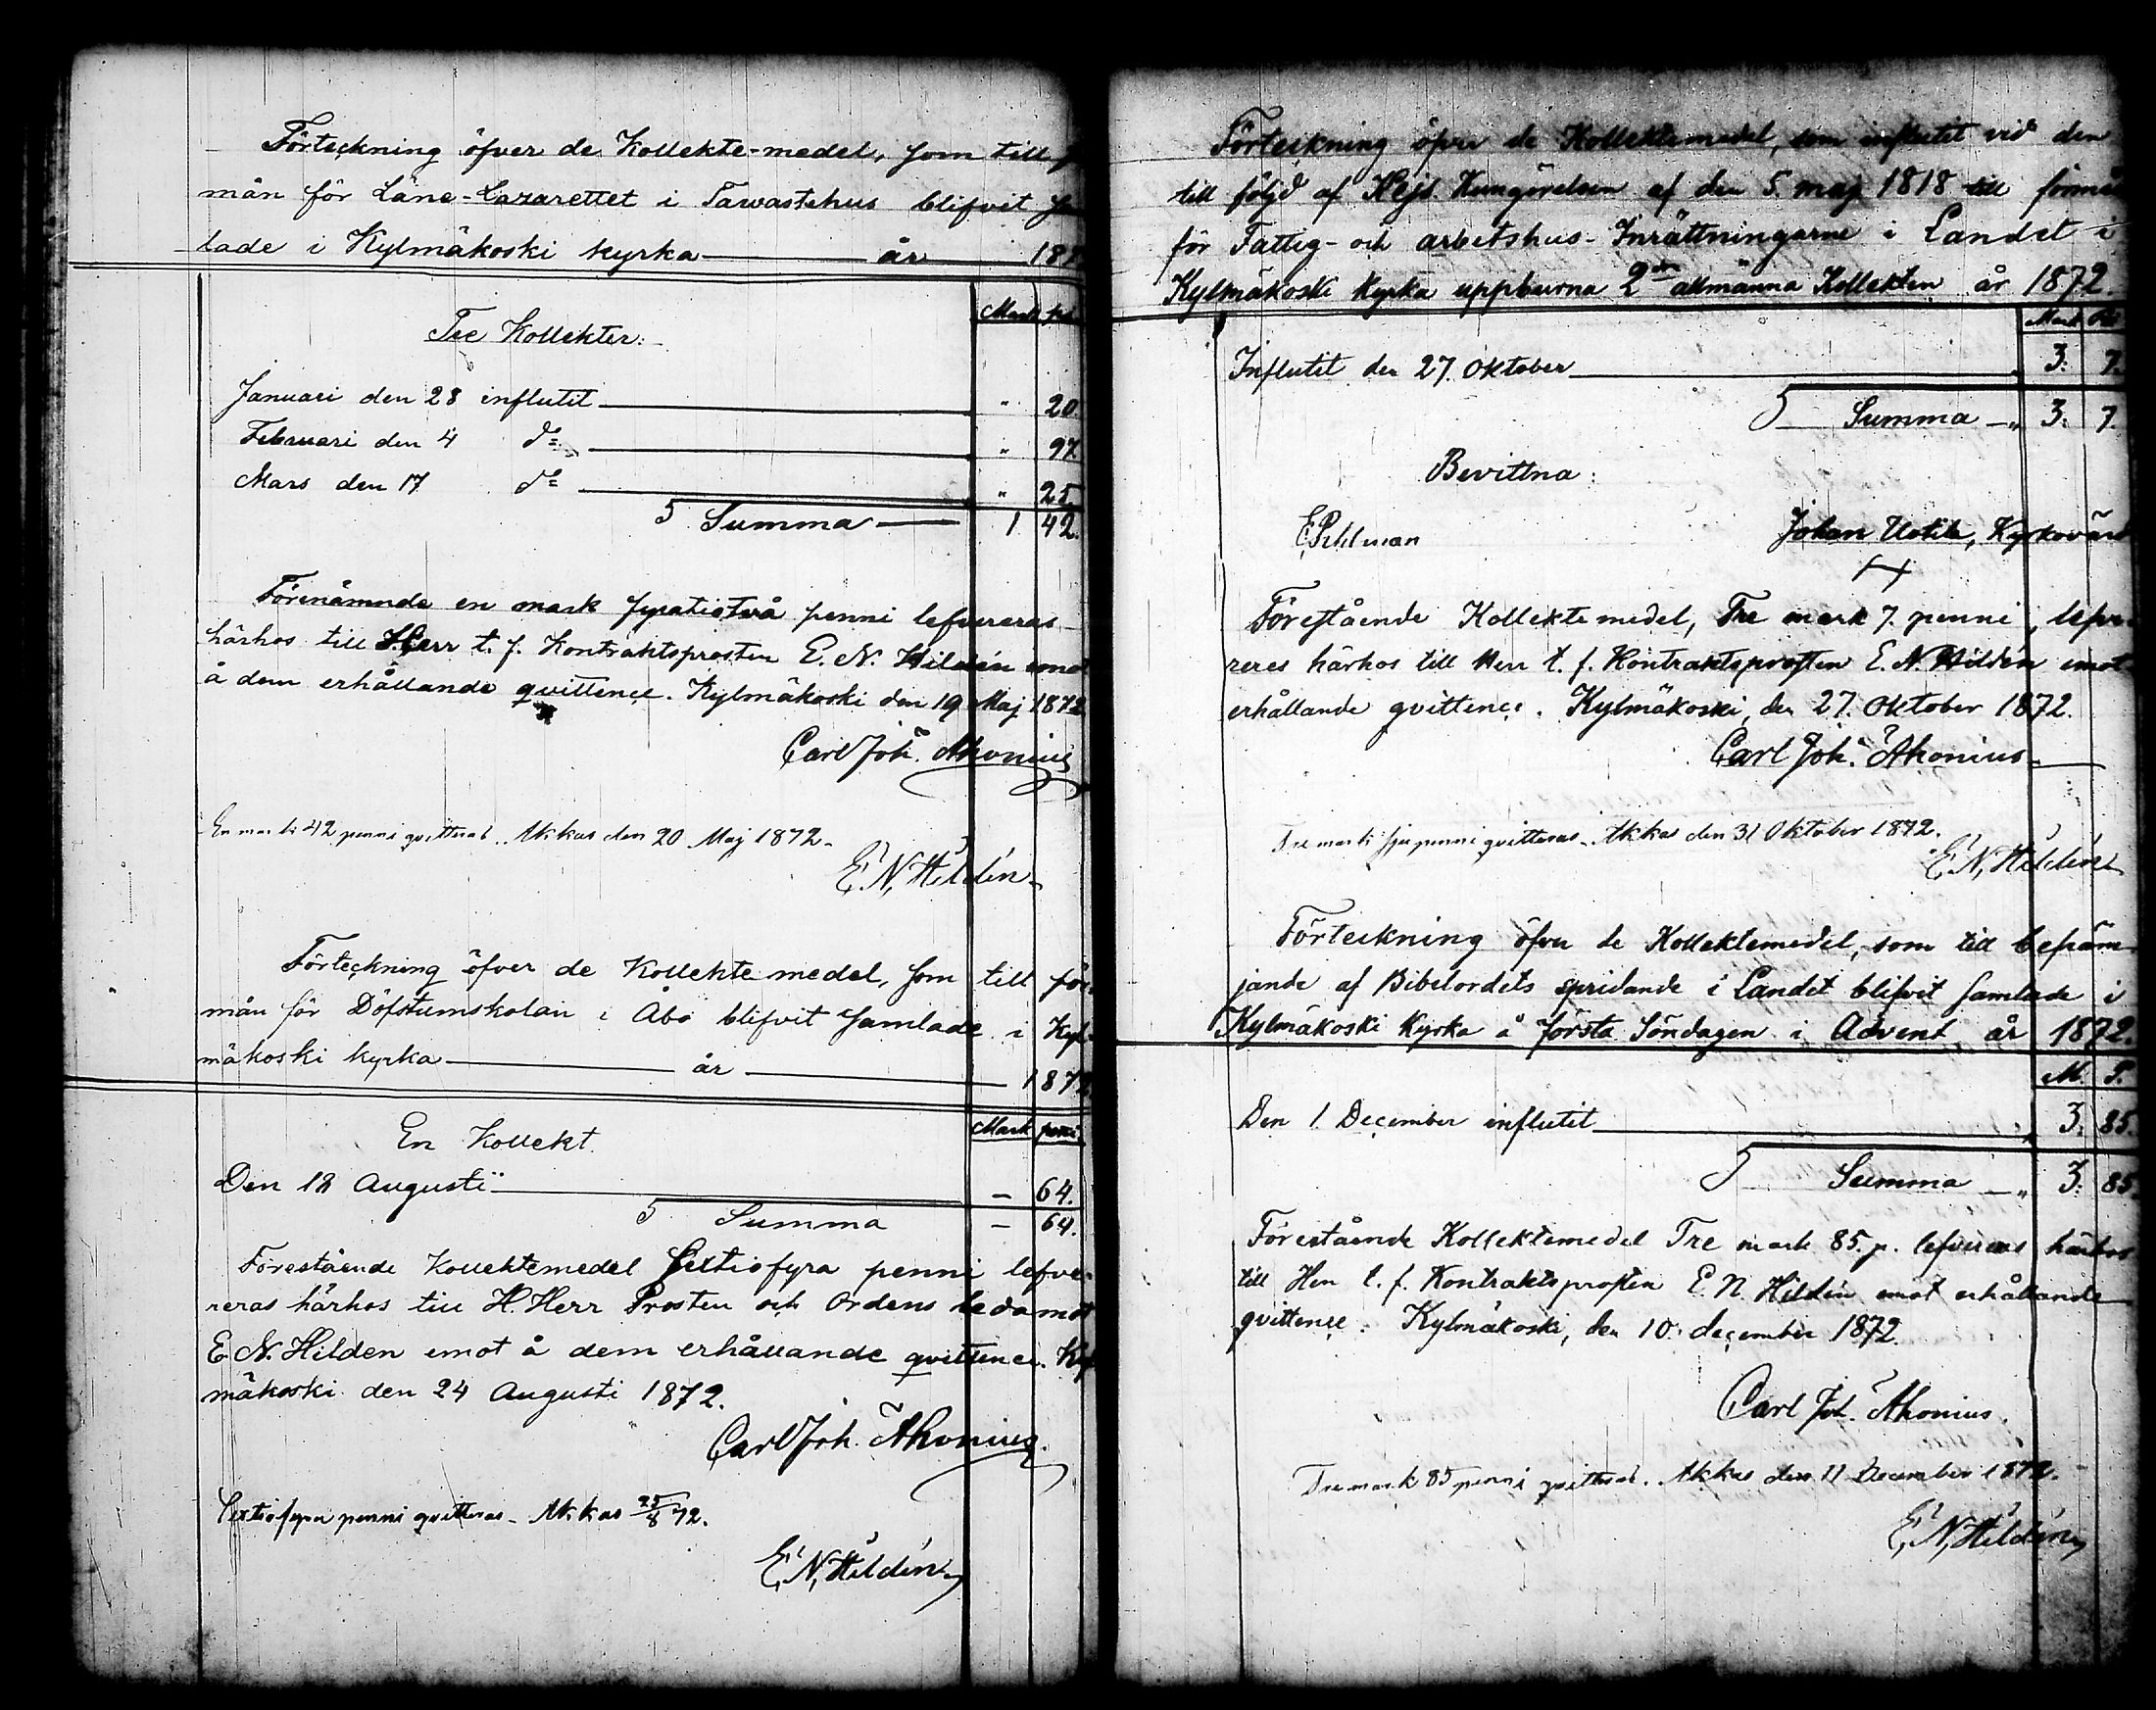 Förteckning öfver de Kollekte-medel, som till f
mån för Läne-Lazarettet i Tawastehus blifvit
lade i Kylmäkoski kyrka år 187
Mark
Tre Kollekter:
Januari den 28 influtit " 20.
Februari den 4 d= " 97.
Mars den 17 d= " 25.
Summa 1 42.
Förenämnde en mark fyratiotvå penni lefvereras
härhos till H.Herr t. f. Kontraktsprosten E. N. Hildén emot
å dem erhållande qvittence. Kylmäkoski den 19 Maj 1872
Carl Joh. Ahonius
En mark 42 penni qvitteras. Akkas den 20 Maj 1872.
E. N. Hildén
Förteckning öfver de Kollekte medel, som till för-
mån för Döfstumskolan i Åbo blifvit samlade i Kyl-
mäkoski kyrka år 1872
Mark penni
En Kollekt.
Den 18 Augusti – 64.
Summa – 64.
Förestående Kollektemedel Sextiofyra penni lefve-
reras härhos till H. Herr Prosten och Ordens ledamot
E. N. Hilden emot å dem erhållande qvittence. Kyl
mäkoski den 24 Augusti 1872.
Carl Joh. Ahonius.
Sextiofyra penni qvitteras. Akkas 25/8 72.
E. N. Hildén
Förteckning öfver de Kollektemedel, som influtit vid den
till följd af Kejs. Kungörelsen af den 5. maj 1818 till förmå
för Fattig- och arbetshus-Inrättningarne i Landet i
Kylmäkoski Kyrka uppburna 2dra allmänna Kollekten år 1872.
Mark
Influtit den 27. Oktober 3. 7.
Summa 3. 7.
Bevittna:
E Pihlman Johan Uotila, Kyrkovärd
Förestående Kollektemedel, Tre mark 7. penni, lefve-
reres härhos till Herr t. f. Kontraktsprosten E. N. Hildén emot
erhållande qvittence. Kylmäkoski, den 27. Oktober 1872.
Carl Joh. Ahonius
Tre mark sju penni qvitteras. Akkas den 31 Oktober 1872.
E. N. Hildén
Förteckning öfver de Kollektemedel, som till befräm-
jande af Bibelordets spridande i Landet blifvit samlade i
Kylmäkoski Kyrka å första Söndagen i Advent år 1872.
M. P.
Den 1. December influtit 3. 85.
Summa 3. 85.
Förestående Kollektemedel Tre mark 85. p. lefvereras härhos
till Herr t. f. Kontraktsprosten E. N. Hildén emot erhållande
qvittence. Kylmäkoski, den 10. december 1872.
Carl Joh. Ahonius.
Tre mark 85 penni qvitteras. Akkas den 11 December 1872.
E. N. Hildén